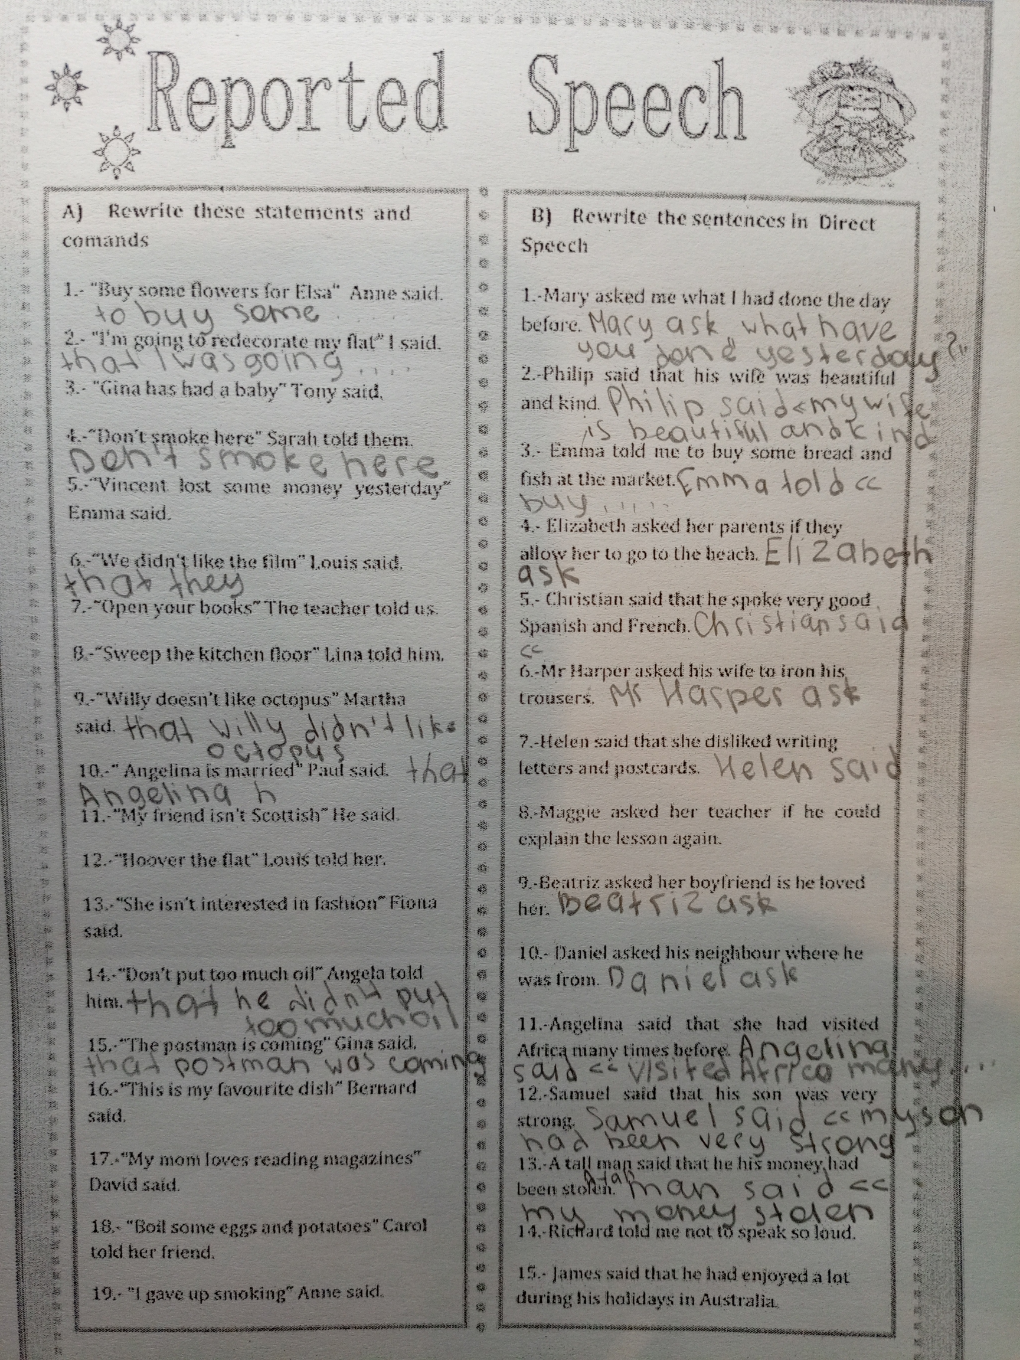 Reported Speech
A) Rewrite these statements and
comands
1.- "Buy some flowers for Elsa" Anne said.
to buy some
2.- "I'm going to redecorate my flat" I said.
that I was going ....
3.- "Gina has had a baby" Tony said.
4.-"Don't smoke here" Sarah told them.
Don't smoke here
5.-"Vincent lost some money yesterday"
Emma said.
6.-"We didn't like the film" Louis said.
that they
7.-"Open your books" The teacher told us.
8.-"Sweep the kitchen floor" Lina told him.
9.-"Willy doesn't like octopus" Martha
said. that Willy didn't like
octopus
10.-" Angelina is married" Paul said. that
Angelina h
11.-"My friend isn't Scottish" He said.
12.-"Hoover the flat" Louis told her.
13.-"She isn't interested in fashion" Fiona
said.
14.-"Don't put too much oil" Angela told
him. that he didn't put
too much oil
15.-"The postman is coming" Gina said.
that postman was coming
16.-"This is my favourite dish" Bernard
said.
17.-"My mom loves reading magazines"
David said.
18.- "Boil some eggs and potatoes" Carol
told her friend.
19.- "I gave up smoking" Anne said.
B) Rewrite the sentences in Direct
Speech
1.-Mary asked me what I had done the day
before. Mary ask what have
you done yesterday?"
2.-Philip said that his wife was beautiful
and kind. Philip said <my wife
is beautiful and kind
3.- Emma told me to buy some bread and
fish at the market. Emma told <<
buy .....
4.- Elizabeth asked her parents if they
allow her to go to the beach. Elizabeth
ask
5.- Christian said that he spoke very good
Spanish and French. Christian said
<<
6.-Mr Harper asked his wife to iron his
trousers. Mr Harper ask
7.-Helen said that she disliked writing
letters and postcards. Helen said
8.-Maggie asked her teacher if he could
explain the lesson again.
9.-Beatriz asked her boyfriend is he loved
her. Beatriz ask
10.- Daniel asked his neighbour where he
was from. Daniel ask
11.-Angelina said that she had visited
Africa many times before. Angelina
said << visited Africa many....
12.-Samuel said that his son was very
strong. Samuel said << my son
had been very strong
13.-A tall man said that he his money had
been stolen. man said <<
my money stolen
14.-Richard told me not to speak so loud.
15.- James said that he had enjoyed a lot
during his holidays in Australia.